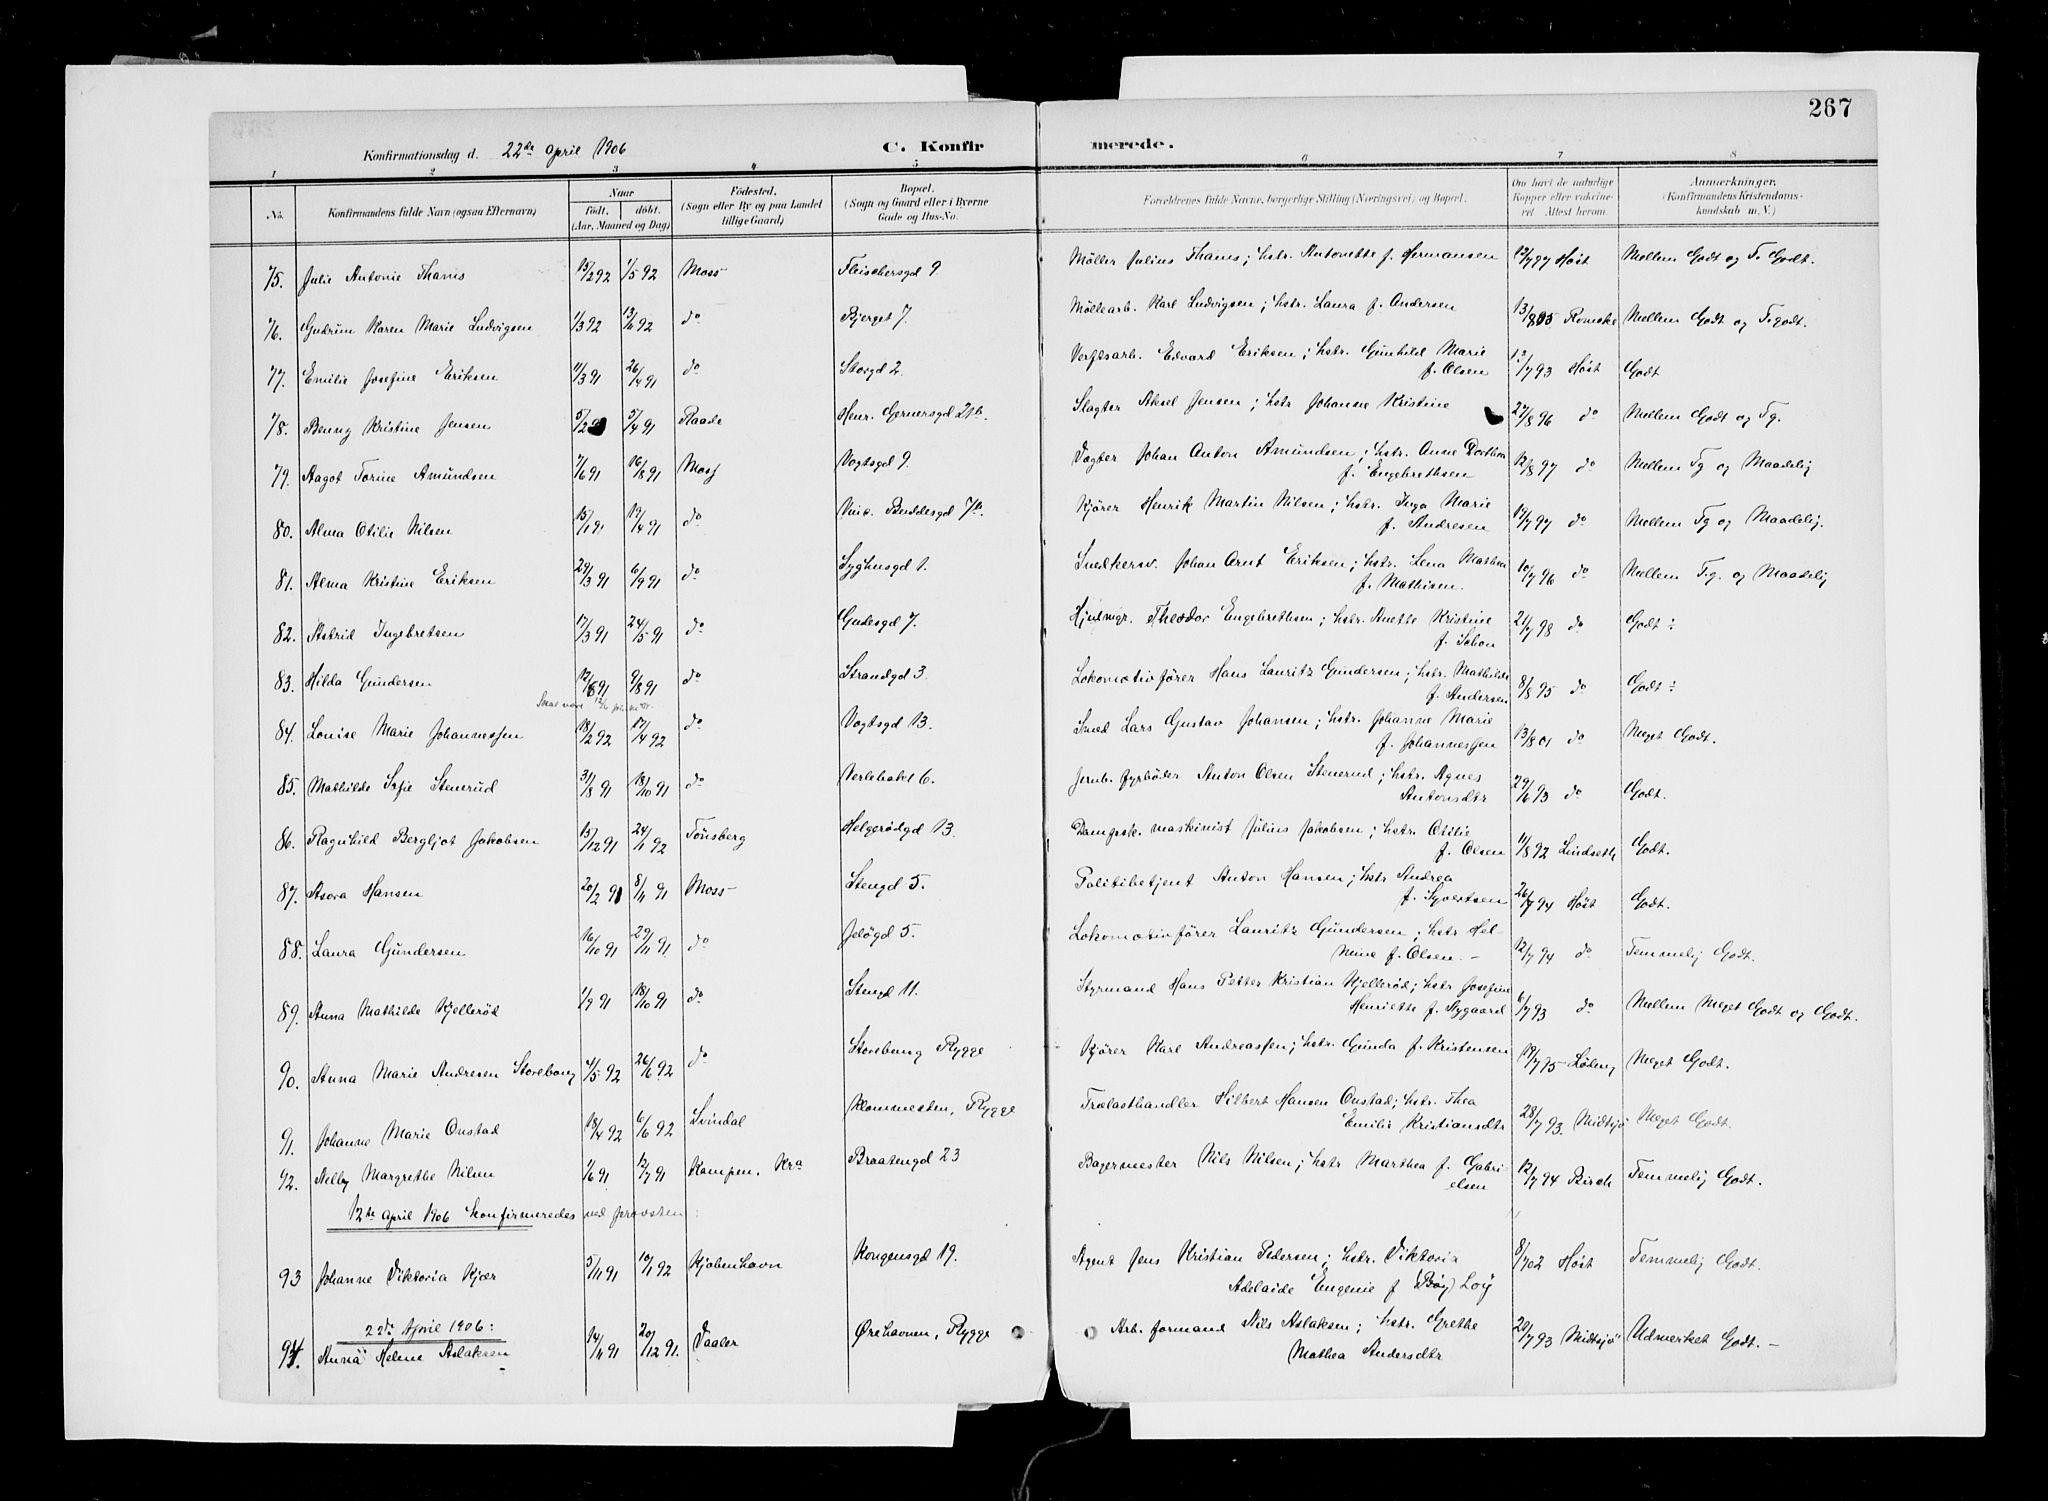 267
Konfirmationsdag d. 22de April 1906 C. Konfirmerede.
1 2 3 4 5 6 7 8
No. Konfirmandens fulde Navn (ogsaa Efternavn) Naar født. døbt. (Aar, Maaned og Dag) Fødested. (Sogn eller By og paa Landet tillige Gaard) Bopæl. (Sogn og Gaard eller i Byerne Gade og Hus-No. Forældrenes fulde Navne, borgerlige Stilling (Næringsvei) og Bopæl. Om havt de naturlige Kopper eller vakcineret. Attest herom. Anmærkninger. (Konfirmandens Kristendomskundskab m. V.)
75. Julie Antonie Thams 15/2 92 1/5 92 Moss Fleischersgd 9 Møller Julius Thams; hstr. Antonette f. Hermansen 13/7 97 Høst Mellem Godt og T. Godt.
76. Gudrun Karen Marie Ludvigsen 1/3 92 13/11 92 do Bjerget 7. Møllearb. Karl Ludvigsen; hstr. Laura f. Andersen 13/8 05 Romcke Mellem Godt og T. godt.
77. Emilie Josefine Eriksen 11/3 91 26/4 91 do Storgd 2. Verftsarb. Edvard Eriksen; hstr. Gunhild Marie f. Olsen 12/7 93 Høst Godt
78. Benny Kristine Jensen 5/2 5/4 91 Raade Henr. Gernersgd 21b. Slagter Aksel Jensen; hstr Johanne Kristine 27/8 96 do Mellem Godt og Tg.
79. Aagot Torine Amundsen 7/6 91 16/8 91 Moss Vogtsgd 9. Vægter Johan Anton Amundsen; hstr. Anne Dorthea f. Engebrethsen 12/8 97 do Mellem Tg og Maadelig
80. Alma Otilie Nilsen 15/1 91 19/4 91 do Vinc. Buddesgd 7b. Kjører Henrik Martin Nilsen; hstr. Inga Marie f. Andresen 17/7 97 do Mellem Tg og Maadelig.
81. Alma Kristine Eriksen 29/3 91 6/9 91 do Syghusgd 1. Snedkersv. Johan Arnt Eriksen; hstr. Lena Mathea f. Mathisen. 10/7 96 do Mellem T.g. og Maadelig
82. Astrid Ingebretsen 17/3 91 24/5 91 do Gudesgd 7. Hjulmgr. Theodor Engebrethsen; hstr. Anette Kristine f. Schou 21/7 98 do Godt ÷
83. Hilda Gundersen 12/8 91 9/8 91 do Strandgd 3. Lokomotivfører Hans Lauritz Gundersen; hstr. Mathilde f. Andersen 8/8 95 do Godt ÷
Skal være 12/6
84. Louise Marie Johannessen 18/2 92 17/4 92 do Vogtsgd 13. Smed Lars Gustav Johansen; hstr. Johanne Marie f. Johannessen 13/8 01 do Meget Godt.
85. Mathilde Sofie Stenerud 31/8 91 18/10 91 do Verlebakk 6. Jernb. fyrbøder Anton Olsen Stenerud; hstr. Agnes Antonsdtr 29/6 93 do Godt.
86. Ragnhild Bergljot Jakobsen 15/12 91 24/1 92 Tønsberg Helgerødgd 13. Dampsk. maskinist Julius Jakobsen; hstr. Otilie f. Olsen 11/8 92 Lindseth Godt.
87. Asora Hansen 20/2 91 8/11 91 Moss Stengd 5. Politibetjent Anton Hansen; hstr Andrea f. Syvertsen 26/7 94 Høst Godt.
88. Laura Gundersen 16/10 91 29/11 91. do Jeløgd 5. Lokomotivfører Lauritz Gundersen; hstr Helmine f. Olsen. - 12/7 94 do Temmelig Godt.
89. Anna Mathilde Kjellerød 1/9 91 18/10 91 do Stengd 11. Styrmand Hans Petter Kristian Kjellerød; hstr Josefine Henriette f. Nygaard 6/7 93 do Mellem Meget Godt og Godt.
90. Anna Marie Andresen Storebaug 4/5 92 26/6 92 do Storebaug Rygge Kjører Karl Andreassen; hstr. Gunda f. Kristensen 19/7 75 Løberg Meget Godt.
91. Johanne Marie Onstad 18/4 92 6/6 92 Svindal Klommesten, Rygge Trælasthandler Hilbert Hansen Onstad; hstr. Thea Emilie Kristiansdtr 28/7 93. Midtsjø Meget Godt.
92. Nelly Margrethe Nilsen 1/6 91 12/7 91 Kampen. Kra Braatengd 23 Bagermester Nils Nilsen; hstr Marthea f. Gabrielsen 12/7 94 Birch Temmelig Godt.
12te April 1906 konfirmeredes ved provsten:
93 Johanne Viktoria Kjær 5/11 91 10/1 92 Kjøbenhavn Kongensgd 19. Agent Jens Kristian Pedersen; hstr. Viktoria Adelaide Eugenie f (Bøy) Loy 8/7 02 Høst Temmelig Godt.
22de April 1906:
94. Anna Helene Aslaksen 14/11 91 20/12 91. Vaaler Ørehavnen, Rygge Arb. formand Nils Aslaksen; hstr. Grethe Mathea Andersdtr 20/7 93 Midtsjø Udmerket Godt. -